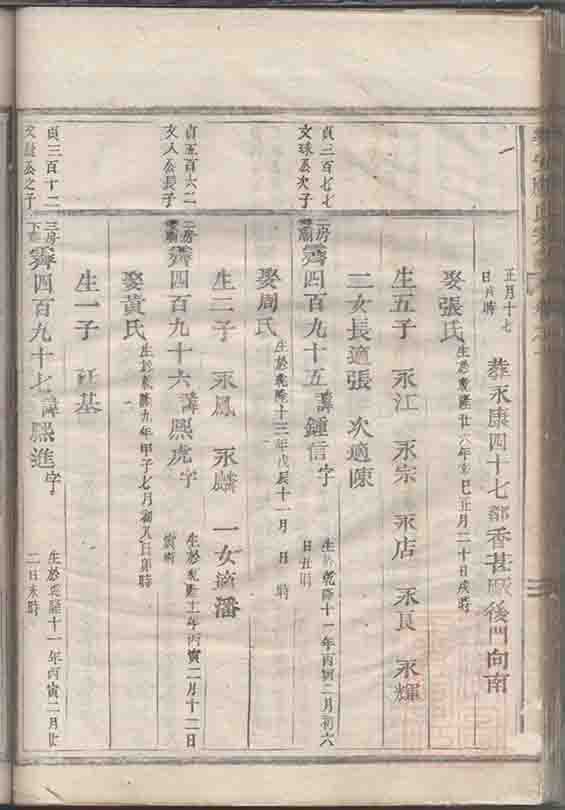 正月十七
日戌時
葬永康四十七都香甚殿後門向南
娶張氏 生於乾隆廿六年辛巳正月二十日戌時
生五子 永江 永宗 永店 永良 永輝
二女長適張 次適陳
貞三百七七
文珠公次子
二房 霽四百九十五諱鍾信字 生於乾隆十一年丙寅二月初六
日丑時
娶周氏 生於乾隆十三年戊辰十一月 日 時
生二子 永鳳 永麟 一女適潘
貞五百六二
文人公長子
二房 霽四百九十六諱熙虎字 生於乾隆十一年丙寅二月十二日
寅時
娶黃氏 生於乾隆九年甲子七月初八日卯時
生一子 旺基
貞三百十二
文 公之子
三房 下 霽四百九十七諱熙進字 生於乾隆十一年丙寅二月廿
二日未時